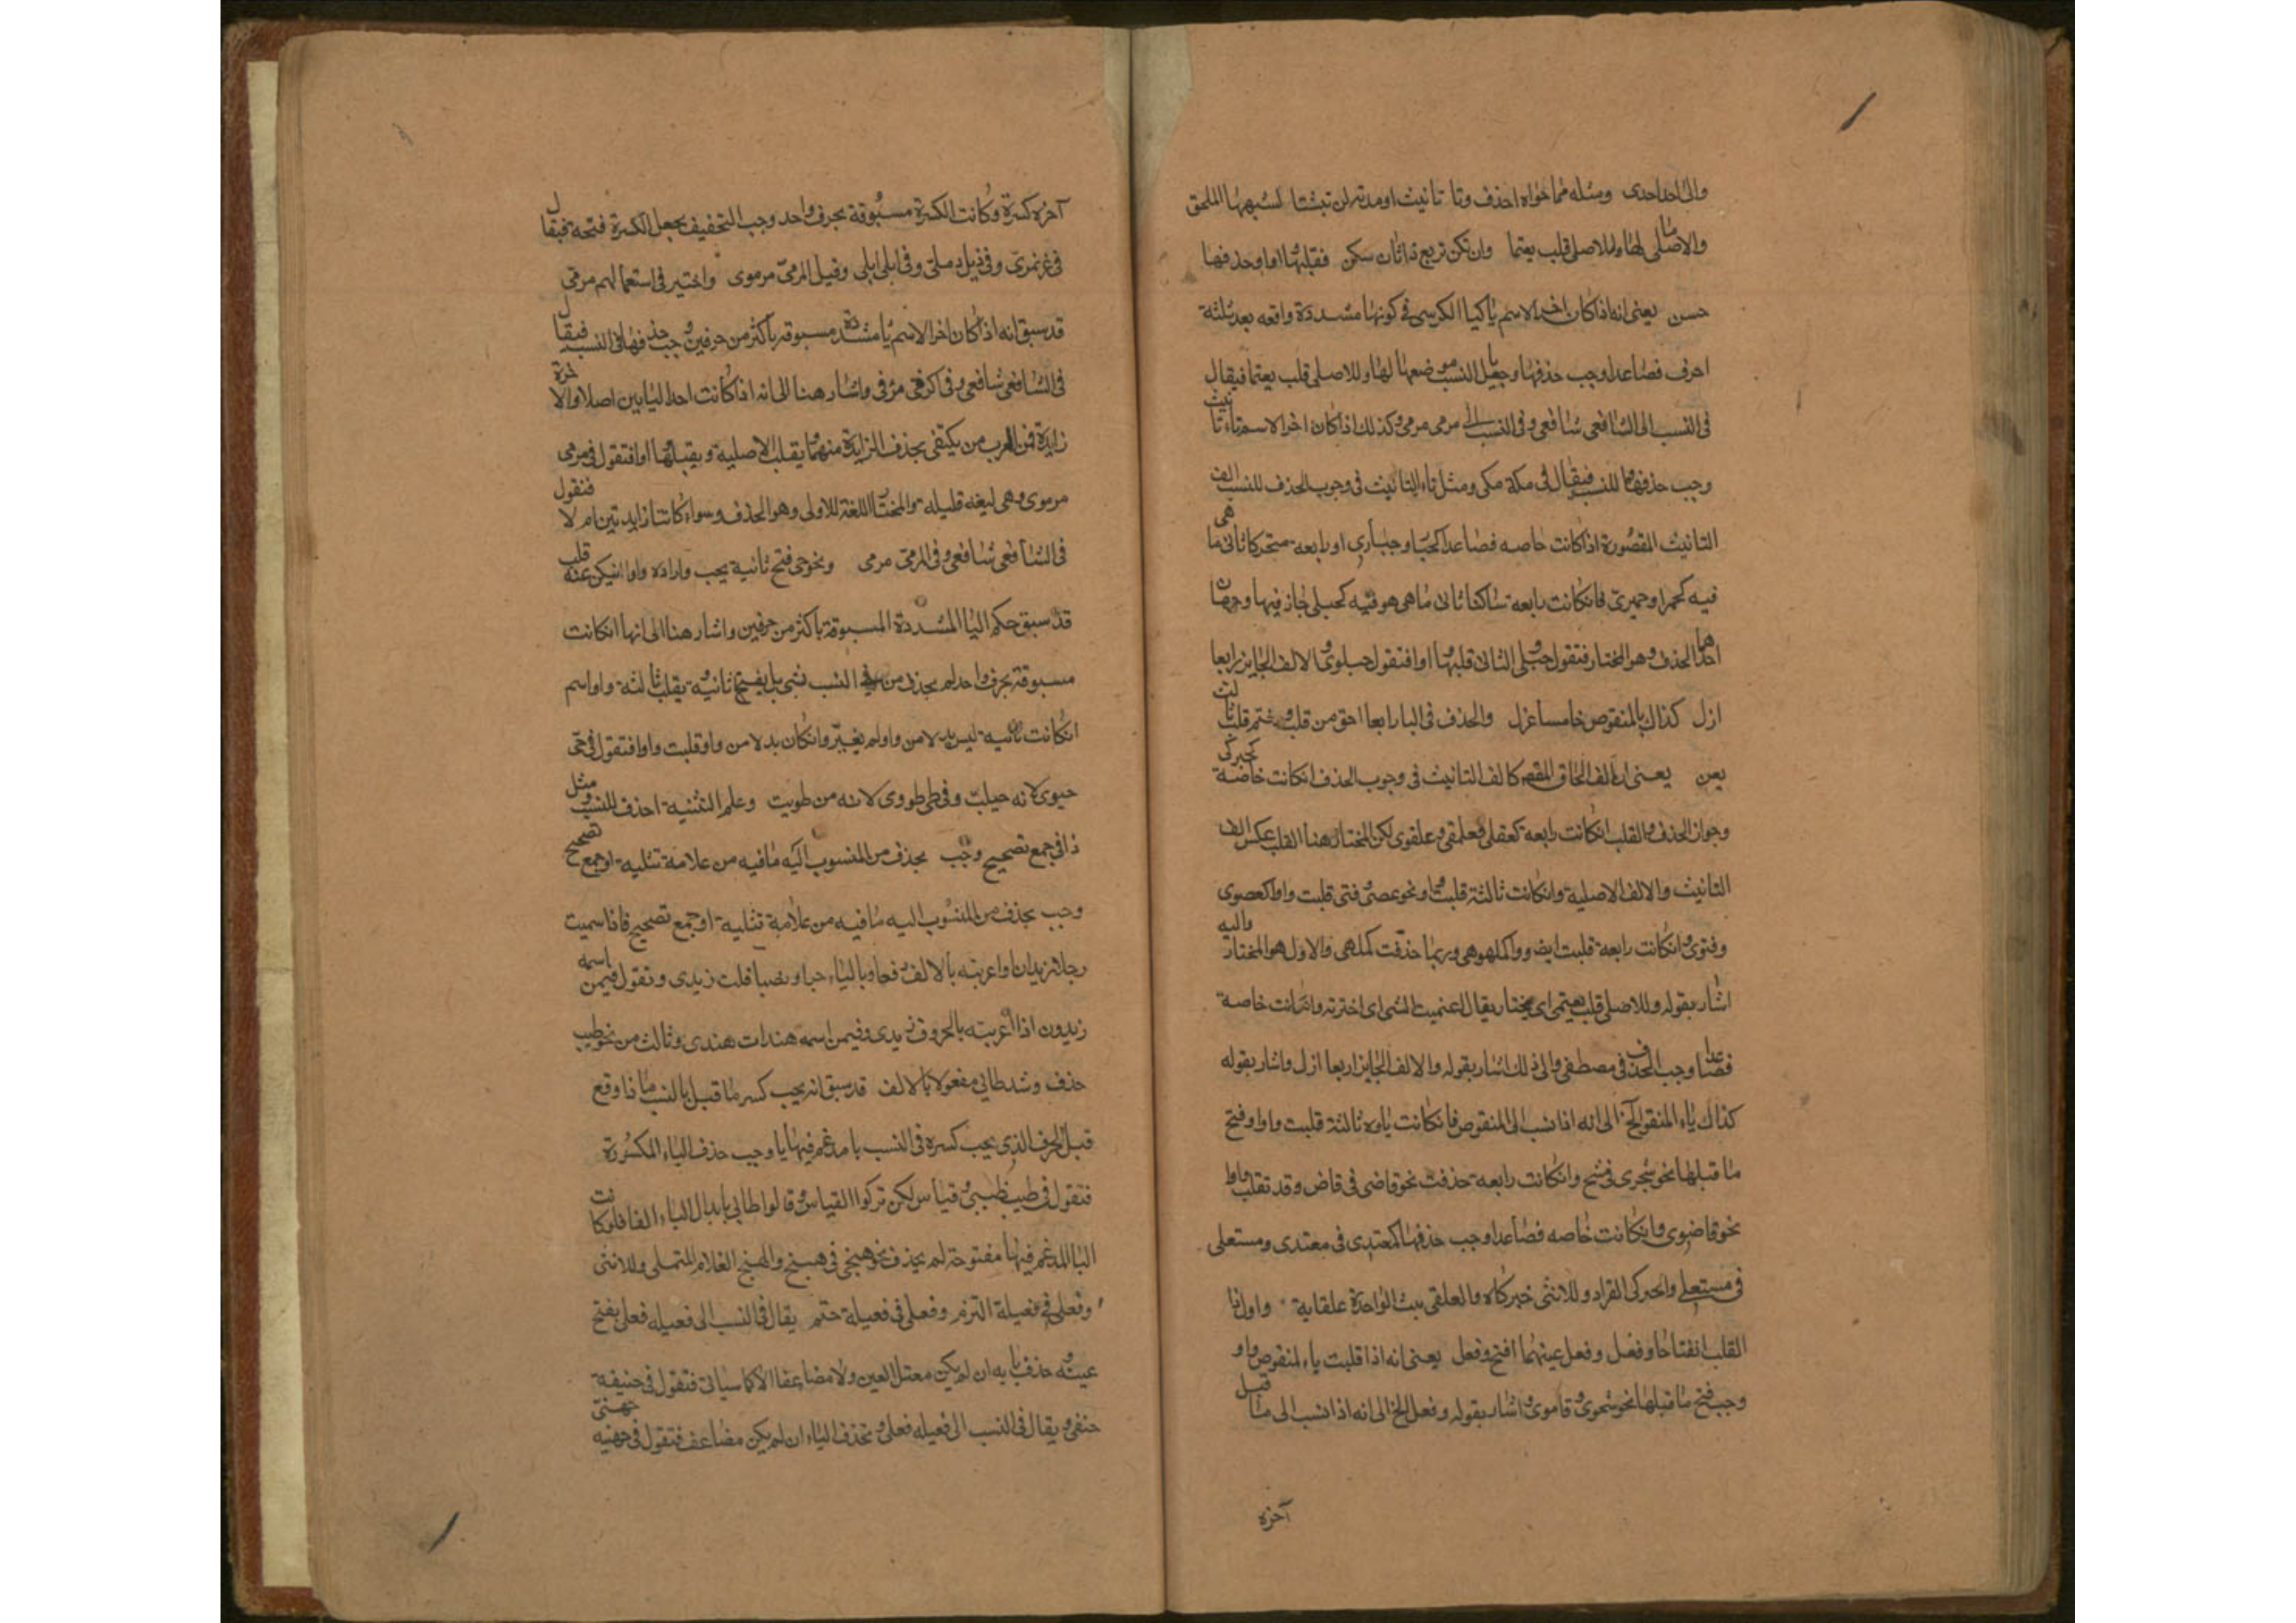 والى احمد احمدى ومثله مما حواه احذف وتا تانيث او مدته لن تبثتا لشبهها الملحق
والاصلى لها وللاصلى قلب يعتما وان تكن تربع ذا ثان سكن فقلبها واوا وحذفها
حسن يعنى انه اذا كان اخر الاسم يا كيا الكرسى فى كونها مشددة واقعه بعد ثلثة
احرف فصاعدا وجب حذفها وجعل يا النسب موضعها لها وللاصلى قلب يعتما فيقال
فى النسب الى الشافعى شافعى وفى النسب الى مرمى مرمى وكذلك اذا كان اخر الاسم تاء تانيث
وجب حذفها للنسب فيقال فى مكة مكى ومثل تاء التانيث فى وجوب الحذف للنسب الف
التانيث المقصورة اذا كانت خاصه فصاعدا كحبا وحبارى او رابعه متحركا ثانى ما هى
فيه كحمرا وحمرىّ فانكانت رابعة ساكنا ثانى ما هى هو فيه كحبلى جاز فيها وجهان
احدها الحذف وهو المختار فتقول حبلى الثانى قلبها واوا فتقول حبلوى والالف الجايز رابعا
ازل كذاك يا المنقوص خامسا عزل والحذف فى اليا رابعا احق من قلب وحتم قلب ثالث
يعن يعنى ان الف الحاق المقصر كالف التانيث فى وجوب الحذف انكانت خاصة كحبركى
وجواز الحذف والقلب انكانت رابعة كعقلى فعلقى وعلقوى لكن المختار هنا القلب عكس الف
التانيث والالف الاصلية وانكانت ثالثة قلبت واوا نحو عصى وفتى قلبت واوا كعصوى
وفتوى وانكانت رابعة قلبت ايضا واوا كملهوهى وربما حذفت كملهى والاول هو المختار واليه
اشار بقوله وللاصلى قلب يعتمى اى يختار يقال اعتميت الشى اى اخترته وانكانت خاصة
فصاعدا وجب الحذف فى مصطفى والى ذلك اشار بقوله والالف الجايز اربعا ازل واشار بقوله
كذاك ياء المنقوص الخ الى انه اذا نسب الى المنقوص فانكانت ياوه ثالثة قلبت واوا وفتح
ما قبلها نحو شجرى فى شج وانكانت رابعة حذفت نحو قاضى فى قاض وقد تقلب واوا
نحو قاضوى وانكانت خاصه فصاعدا وجب حذفها كمعتدى فى معتدى ومستعلى
فى مستعلى والحبركى القراد وللانثى حبركاه والعلقى نبت الواحدة علقاية واول ذا
القلب انفتاحا وفعل وفعل عينهما افتح وفعل يعنى انه اذا قلبت ياء المنقوص واو
وجب فتح ما قبلها نحو شجوى وقاموى واشار بقوله وفعل الخ الى انه اذا نسب الى ما قبل
آخره
آخره كسرة وكانت الكسرة مسبوقة بحرف واحد وجب التخفيف بجعل الكسرة فتحه فيقال
فى نمر نمرى وفى ذيل دملى وفى ابلى ابلى وقيل المرمىّ مرموى واختير فى استعمالهم مرمى
قد سبق انه اذا كان اخر الاسم يا مشددة مسبوقه باكثر من حرفين وجب حذفها فى النسب فيقال
فى الشافعى شافعى وفى كرفى مرفى واشار هنا الى انه اذا كانت احد اليايين اصلا والاخرة
زايدة فمن العرب من يكتفى بحذف الزايدة منهما ويقلب الاصلية ويقبلها واوا فتقول فى مرمى
مرموى وهى ليغه قليله والمختار اللغة للاولى وهو الحذف وسواء كانتا زايدتين ام لا فتقول
فى الشافعى شافعى وفى المرمىّ مرمى ونحو حى فتح ثانية يجب واردده واوا ان يكن عنه قلب
قد سبق حكم اليا المشددة المسبوقة باكثر من حرفين واشار هنا الى انها انكانت
مسبوقة بحرف واحد لم يحذف من فى النسب شى بل يفتح ثانيه ويقلب ثالثه واوا سم
انكانت ثانيه ليس بدلا من واو لم يغير وانكان بدلا من واو قلبت واوا فتقول فى حىّ
حيوى لانه حيلت وفى طى طووى لانه من طويت وعلم التثنية احذف للنسب ومثل
ذا فى جمع تصحيح وجب يحذف من المنسوب اليه ما فيه من علامة تثليه او جمع تصحيح
وجب يحذف من المنسوب اليه ما فيه من علامة تثليه او جمع تصحيح فاذا سميت
رجلا زيدان واعربته بالالف رفعا وباليا، جرا ونصبا قلت زيدى وتقول فيمن اسمه
زيدون اذا اعربته بالحروف زيدى وفيمن اسمه هندات هندى وثالث من نحو طيب
حذف وشد طائي مفعولا بالالف قد سبق انه يجب كسر ما قبل يا النسب فاذا وقع
قبل الحرف الذى يجب كسره فى النسب يا مدغم فيها يا وجب حذف الياء المكسورة
فتقول فى طيب طيبى وقياس لكن تركوا القياس وقالوا طائى بابدال الياء الفا فلو كانت
اليا المدغم فيها مفتوحة لم يحذف نحو هبيخى فى هبيخ والهبيخ الغلام الممتلى وللانثى
وفعلى فى فعيلة التزم وفعلى فى فعيلة حتم يقال فى النسب الى فعيله فعلى بفتح
عينه وحذف يا به ان لم يكن معتل العين ولا مضاعفا الاكما سياتى فتقول فى حنيفة
حنفى ويقال فى النسب الى فعيله فعلى وتحذف الياء ان لم يكن مضاعف فتقول فى جهنيه جهنىّ